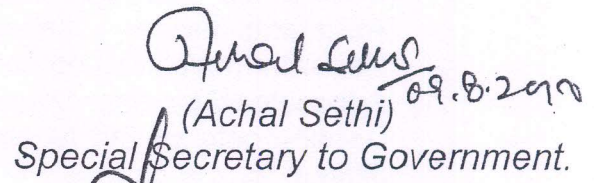 Achal Sethi
(Achal Sethi)
Special Secretary to Government.